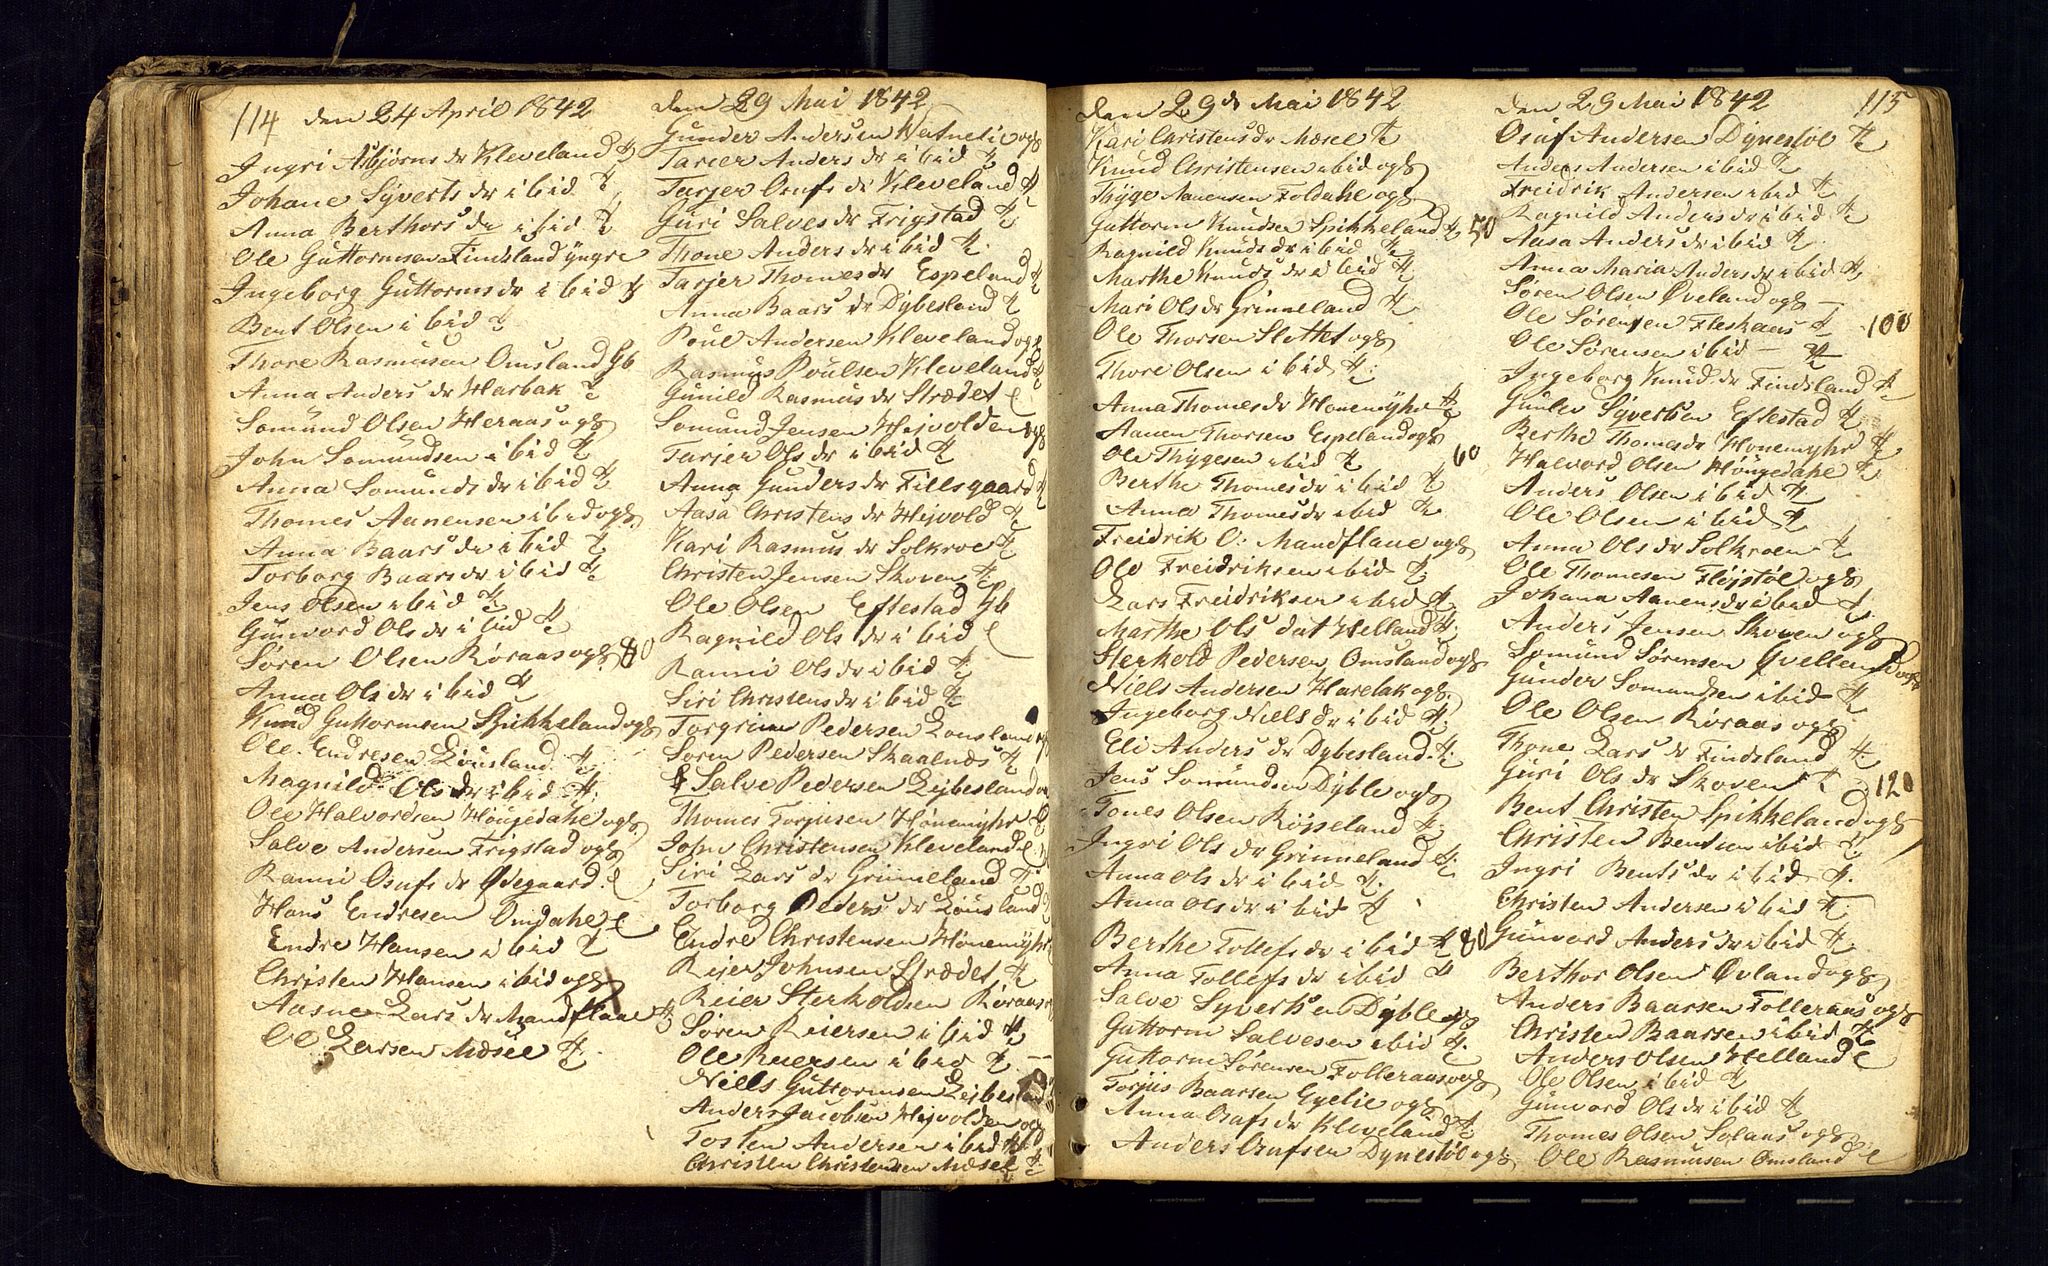 114 den 24 April 1842
Ingri Asbjørns dr Kleveland
Johane Syverts dr ibid
Anna Berthors dr ibid
Ole Guttormsen Findsland yngre
Ingeborg Guttorms dr ibid
Bent Olsen ibid
Thore Rasmusen Omsland
Anna Anders dr Harbak
Somund Olsen Heraas og
John Somundsen ibid
Anna Somunds dr ibid
Thomes Aanensen ibid og
Anna Baars dr ibid
Torborg Baars dr ibid
Jens Olsen ibid
Gunvord Ols dr ibid
Søren Olsen Røraas og 80
Anna Ols dr ibid
Knud Guttormsen Spikkeland og
Ole Endresen Lousland
Magnild Ols dr ibid
Ole Halvordsen Høugedahl og
Salve Andersen Frigstad og
Ranni Osufs dr Ødegaard
Hans Endresen Omdahl
Endre Hansen ibid
Christen Hansen ibid og
Aasne Lars dr Mandflaae
Ole Larsen Mæsel
den 29 Mai 1842
Gunder Andersen Vatnelie og
Tarjer Anders dr ibid
Tarjer Osufs dr Kleveland
Guri Salves dr Frigstad
Thone Anders dr ibid
Tarjer Thomes dr Espeland
Anna Baars dr Dybesland
Poul Andersen Kleveland og
Rasmus Poulsen Kleveland
Gunild Rasmus dr Strædet
Somund Jensen Hejvolden og
Tarjer Ols dr ibid
Anna Gunders dr Fillsgaard
Aasa Christens dr Hejvold
Kari Rasmus dr Solkroe
Christen Jensen Skoven
Ole Olsen Eftestad
Ragnild Ols dr ibid
Ranni Ols dr ibid
Siri Christens dr ibid
Torgrim Pedersen Lousland
Søren Pedersen Skaalnæs
Salve Pedersen Lejbesland
Thomes Torjusen Hønemyhr
John Christensen Kleveland
Siri Lars dr Grimeland
Torborg Peders dr Lousland
Endre Christensen Hønemyhr
Reier Johnsen Strædet
Reier Sterkoldsen Røraas
Søren Reiersen ibid
Ole Reiersen ibid
Niels Guttormsen Lejbesland
Anders Jacobsen Hejvolden og
Tosten Andersen ibid
Christen Christensen Mæsel
den 29de Mai 1842
Kari Christens dr Mæsel
Knud Christensen ibid og
Thyge Aanensen Foldahl og
Guttorm Knudsen Spikkeland 50
Ragnild Knuds dr ibid
Marthe Knuds dr ibid
Mari Ols dr Grimeland
Ole Thorsen Slottet og
Thore Olsen ibid
Anna Thomes dr Honemyhr
Aanen Thorsen Espeland og
Ole Thygesen ibid 60
Berthe Thomes dr ibid
Anna Thomes dr ibid
Freidrik O: Mandflaae og
Ole Freidriksen ibid
Lars Freidriksen ibid
Marthe Ols dat Helland
Sterkold Pedersen Omsland og
Niels Andersen Harebak og
Ingeborg Niels dr ibid
Eli Anders dr Dybesland
Jens Somundsen Dyble og
Tones Olsen Røjseland
Ingri Ols dr Grimeland
Anna Ols dr ibid
Anna Ols dr ibid
Berthe Tollefs dr ibid 80
Anna Tollefs dr ibid
Salve Syvertsen Dyble og
Guttorm Salvesen ibid
Guttorm Sørensen Tolleraas og
Torjus Baarsen Egelie og
Anna Osufs dr Kleveland
Anders Osufsen Dynestøl og
den 29 Mai 1842 115
Osuf Andersen Dynestøl
Anders Andersen ibid
Freidrik Andersen ibid
Ragnild Anders dr ibid
Aasa Anders dr ibid
Anna Maria Anders dr ibid
Søren Olsen Øveland og
Ole Sørensen Fleskaas 100
Ole Sørensen ibid
Ingeborg Knuds dr Findsland
Gunlev Syvertsen Eftestad
Berthe Thomes dr Honemyhr
Halvord Olsen Høugedahl
Anders Olsen ibid
Ole Olsen ibid
Anna Ols dr Solkroen
Ole Thomesen Fløjstøl og
Johana Aanens dr ibid
Anders Jensen Skoven og
Somund Sørensen Qvelland og
Gunder Somundsen ibid
Ole Olsen Røraas og
Thone Lars dr Findsland
Guri Ols dr Skoven 120
Bent Christen Spikkeland og
Christen Bentsen ibid
Ingri Bents dr ibid
Christen Andersen ibid
Gunvord Anders dr ibid
Berthor Olsen Øvland og
Anders Baarsen Tolleraas og
Christen Baarsen ibid
Anders Olsen Helland
Ole Olsen ibid
Gunvord Ols dr ibid
Thomes Olsen Solaas og
Ole Rasmusen Omsland